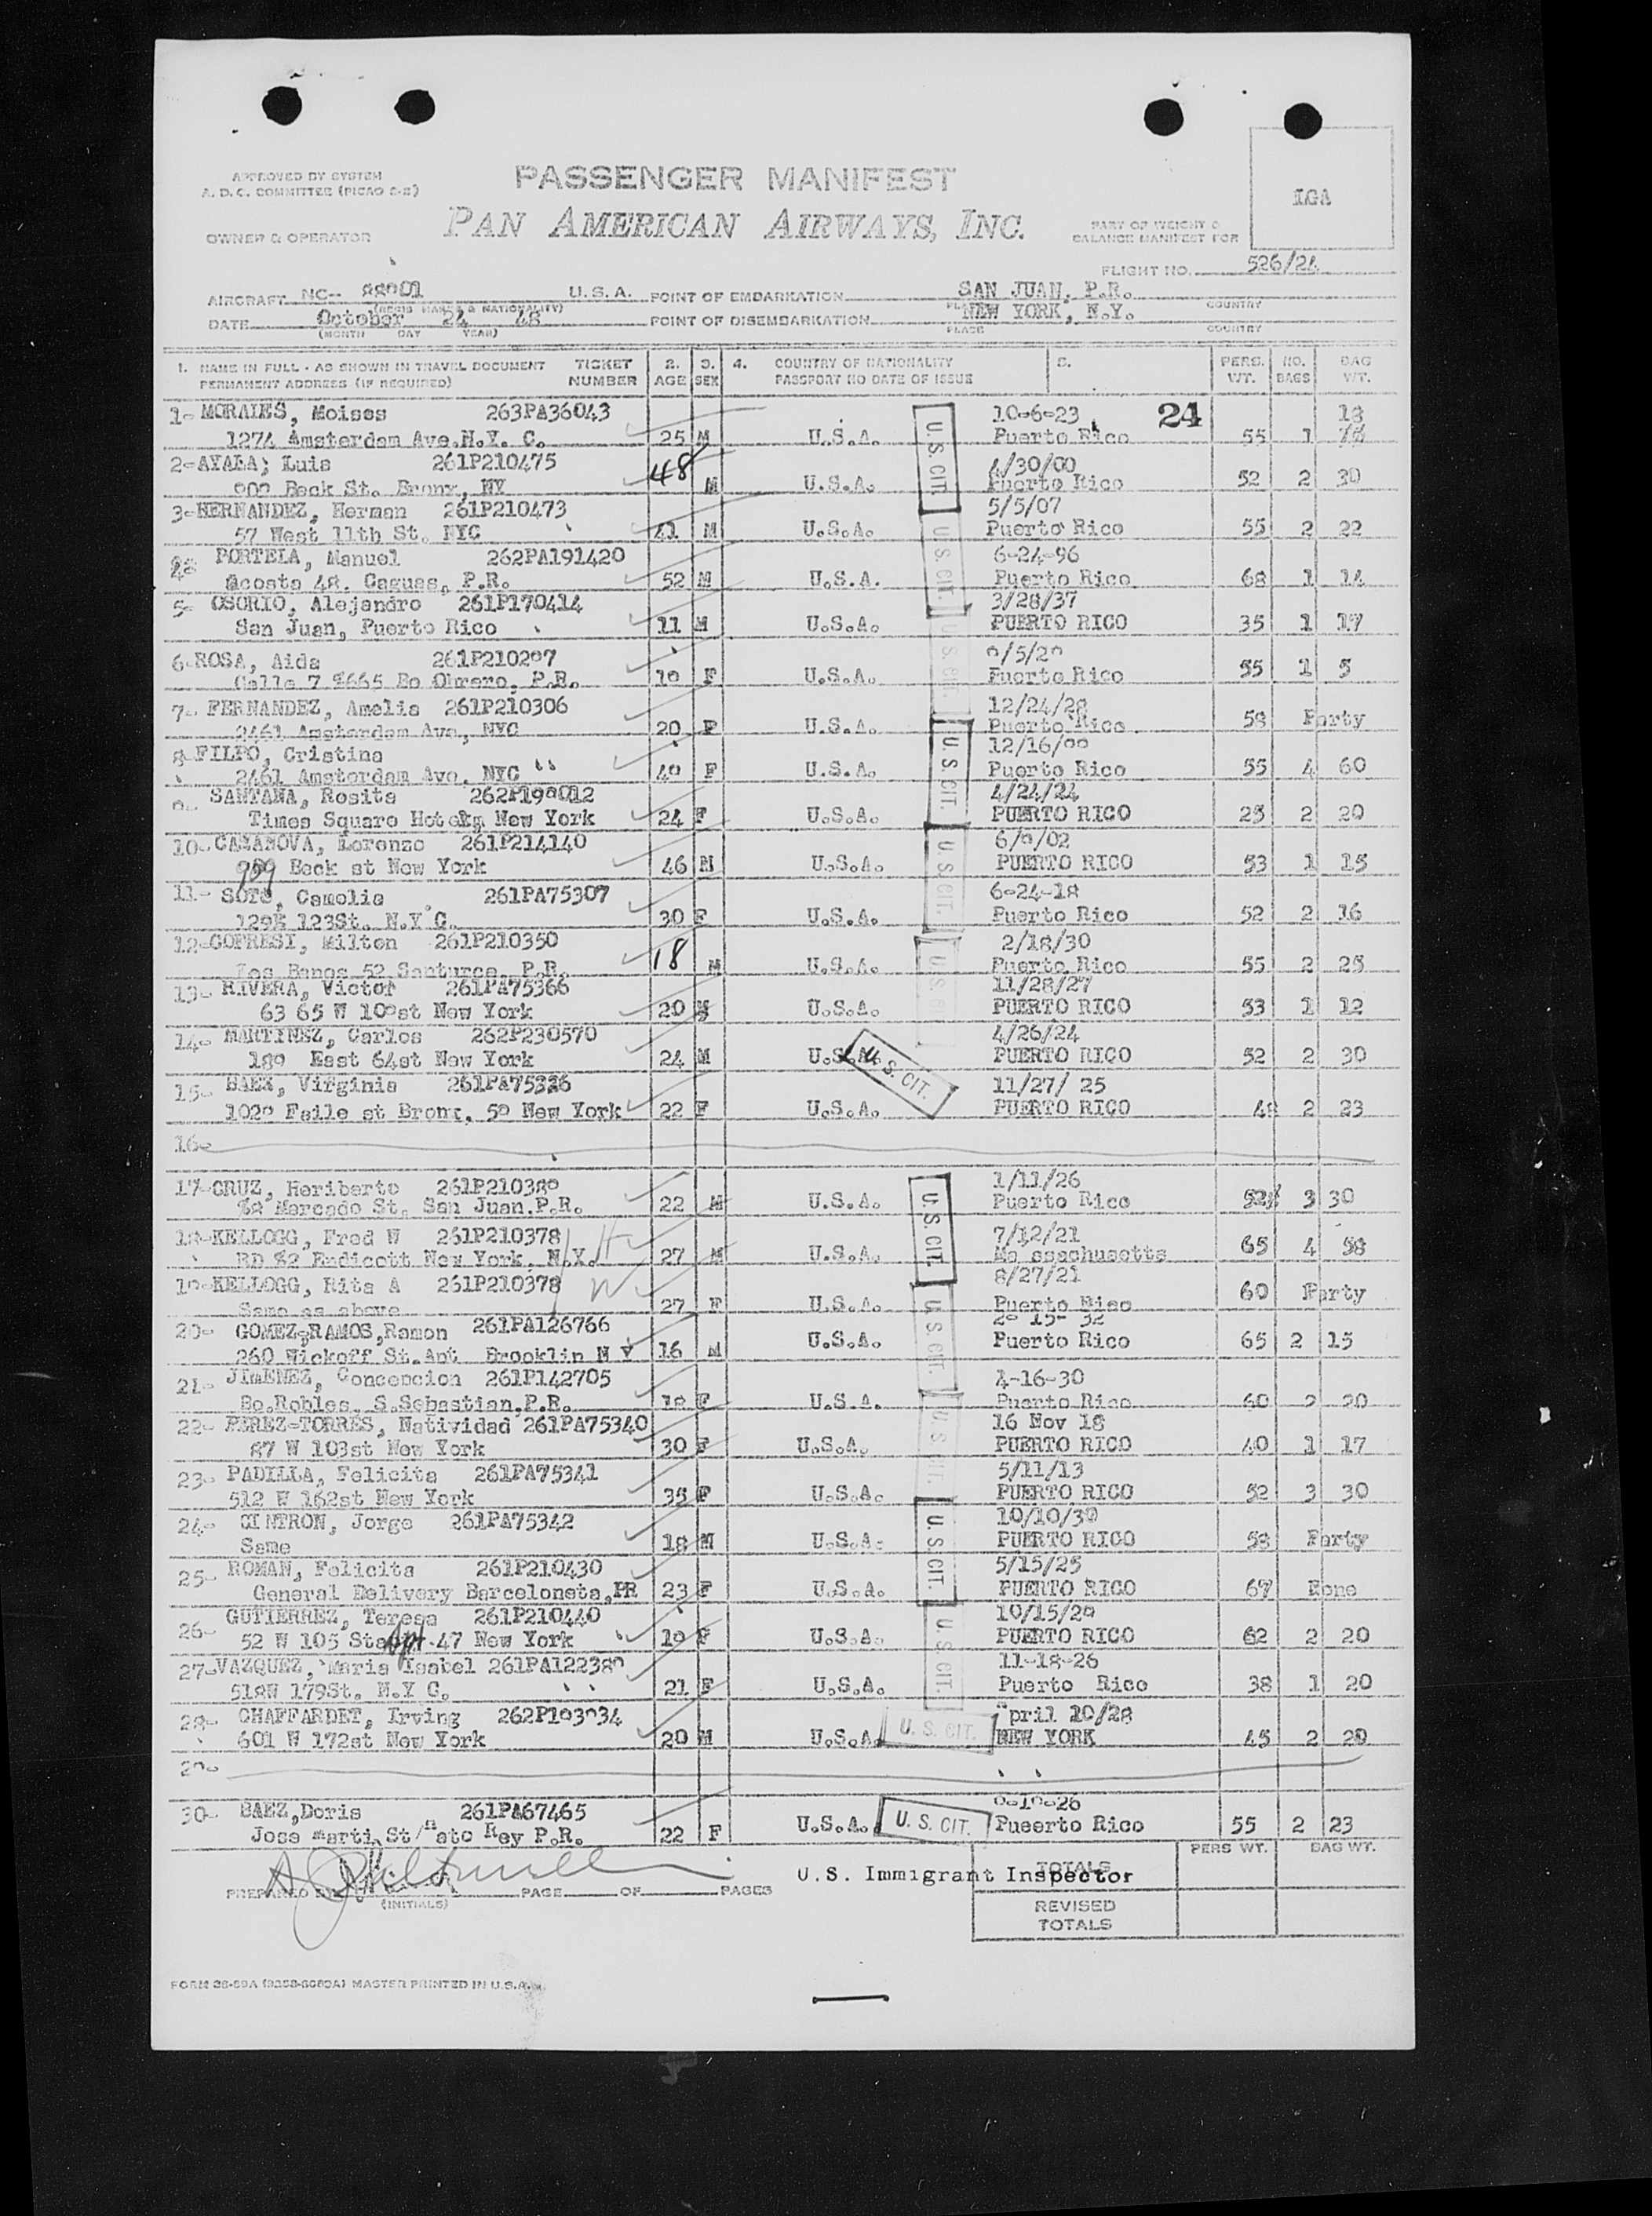 APPROVED BY SYSTEM
A. D. C. COMMITTEE (PICAO 2-8)
OWNER & OPERATOR
PASSENGER MANIFEST
PAN AMERICAN AIRWAYS, INC.
PART OF WEIGHT &
BALANCE MANIFEST FOR
LGA
FLIGHT NO. 526/24
AIRCRAFT NC-- U.S.A. POINT OF EMBARKATION SAN JUAN, P.R.
PLACE COUNTRY
DATE October 24 48 POINT OF DISEMBARKATION NEW YORK, N.Y.
(MONTH DAY YEAR) PLACE COUNTRY
1. NAME IN FULL - AS SHOWN IN TRAVEL DOCUMENT TICKET 2. 3. 4. COUNTRY OF NATIONALITY 5. PERS. NO. BAG
PERMANENT ADDRESS (IF REQUIRED) NUMBER AGE SEX PASSPORT NO DATE OF ISSUE WT. BAGS WT.
1- MORALES, Moises 263PA36043 10-6-23 24 18
1274 Amsterdam Ave.N.Y. C. 25 M U.S.A. Puerto Rico 55 1
2- AYALA; Luis 261P210475 4/30/00
Beck St. Bronx, NY 48 M U.S.A. Puerto Rico 52 2 30
3- HERNANDEZ, Herman 261P210473 5/5/07
57 West 11th St. NYC 41 M U.S.A. Puerto Rico 55 2 22
4- PORTELA, Manuel 262PA191420 6-24-96
Acosta 48, Caguas, P.R. 52 M U.S.A. Puerto Rico 68 1 14
5- OSORIO, Alejandro 261P170414 3/28/37
San Juan, Puerto Rico 11 M U.S.A. PUERTO RICO 35 1 17
6- ROSA, Aida 261P210297 9/5/29
Calle 7 %665 Bo Obrero, P.R. 19 F U.S.A. Puerto Rico 55 1 5
7- FERNANDEZ, Amelia 261P210306 12/24/28
2461 Amsterdam Ave, NYC 20 F U.S.A. Puerto Rico 58 Party
8- FILPO, Cristina 12/16/99
2461 Amsterdam Ave. NYC " 49 F U.S.A. Puerto Rico 55 4 60
9- SANTANA, Rosita 262P199012 4/24/24
Times Square Hotel New York 24 F U.S.A. PUERTO RICO 25 2 20
10- CAZANOVA, Lorenzo 261P214140 6/9/02
959 Beck st New York 46 M U.S.A. PUERTO RICO 53 1 15
11- SOTO, Camelia 261PA75307 6-24-18
129E 123St. N.Y C. 30 F U.S.A. Puerto Rico 52 2 16
12- COFRESI, Milton 261P210350 2/18/30
Los Banos 52 Santurce, P.R. 18 M U.S.A. Puerto Rico 55 2 25
13- RIVERA, Victor 261PA75366 11/28/27
63 65 W 109st New York 20 M U.S.A. PUERTO RICO 53 1 12
14- MARTINEZ, Carlos 262P230570 4/26/24
189 East 64st New York 24 M U.S.A. U. S. CIT. PUERTO RICO 52 2 30
15- BAEZ, Virginia 261PA75326 11/27/ 25
1029 Faile st Bronx, 59 New York 22 F U.S.A. PUERTO RICO 48 2 23
16-
17- CRUZ, Heriberto 261P210389 1/11/26
%8 Mercado St. San Juan.P.R. 22 M U.S.A. Puerto Rico 3 30
18- KELLOGG, Fred W 261P210378 7/12/21
RD %2 Endicott New York, N.Y. H 27 M U.S.A. Massachusetts 65 4 58
19- KELLOGG, Rita A 261P210378 8/27/21
Same as above W 27 F U.S.A. Puerto Rico 60 Party
20- GOMEZ-RAMOS,Ramon 261PA126766 15- 32
260 Wickoff St.Apt Brooklin N Y 16 M U.S.A. Puerto Rico 65 2 15
21- JIMENEZ, Concepcion 261P142705 4-16-30
Bo.Robles, S.Sebastian.P.R. 18 F U.S.A. Puerto Rico 60 2 20
22- PEREZ-TORRES, Natividad 261PA75340 16 Nov 18
87 W 103st New York 30 F U.S.A. PUERTO RICO 40 1 17
23- PADILLA, Felicita 261PA75341 5/11/13
512 W 162st New York 35 F U.S.A. PUERTO RICO 52 3 30
24- CINTRON, Jorge 261PA75342 10/10/30
Same 18 M U.S.A. PUERTO RICO 58 Party
25- ROMAN, Felicita 261P210430 5/15/25
General Delivery Barceloneta,PR 23 F U.S.A. PUERTO RICO 67 None
26- GUTIERREZ, Teresa 261P210440 10/15/29
52 W 105 St Apt 47 New York 19 F U.S.A. PUERTO RICO 62 2 20
27- VAZQUEZ, Maria Isabel 261PA122389 11-18-26
518W 179St. N.Y C. 21 F U.S.A. Puerto Rico 38 1 20
28- CHAFFARDET, Irving 262P193934 April 10/28
601 W 172st New York 20 M U.S.A. U. S. CIT. NEW YORK 45 2 20
29-
30- BAEZ,Doris 261PA67465 9-19-26
Jose Marti St/Hato Rey P.R. 22 F U.S.A. U. S. CIT. Pueerto Rico 55 2 23
U.S. CIT.
U.S. CIT.
U.S. CIT.
U.S. CIT.
U.S. CIT.
U.S. CIT.
U.S. CIT.
U.S. CIT.
U.S. CIT.
U.S. CIT.
U.S. CIT.
PERS WT. BAG WT.
U.S. Immigrant Inspector TOTALS
PREPARED BY PAGE OF PAGES
(INITIALS)
REVISED
TOTALS
FORM MASTER PRINTED IN U.S.A.